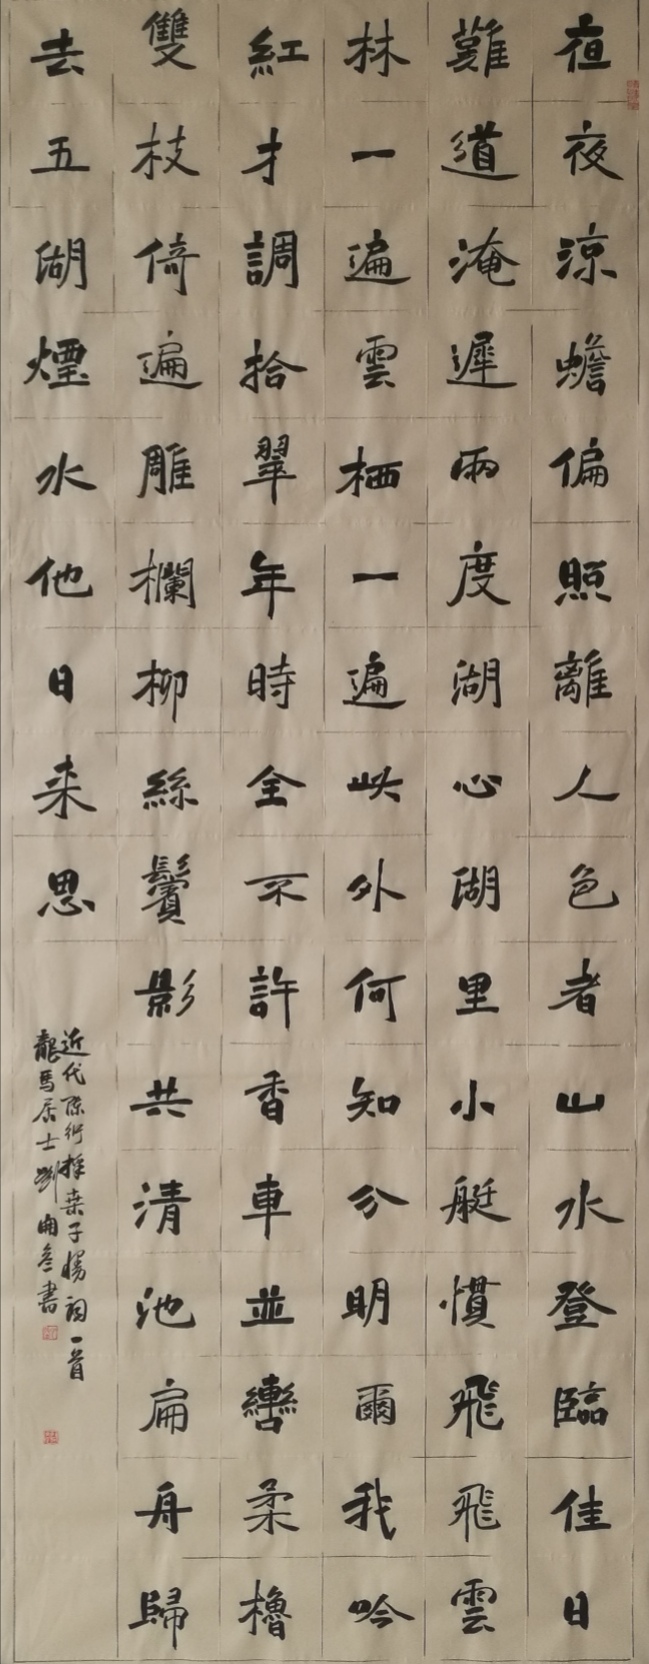 夜夜涼蟾偏照離人色者山水登臨佳日
難道淹遲雨度湖心湖里小艇慣飛飛雲
林一遍雲栖一遍此外何知分明爾我吟
紅才調拾翠年時全不許香車並轡柔櫓
雙枝倚遍雕欄柳絲鬢影共清池扁舟歸
去五湖煙水他日来思
近代陈衍採桑子慢词一首
龍馬居士劉書